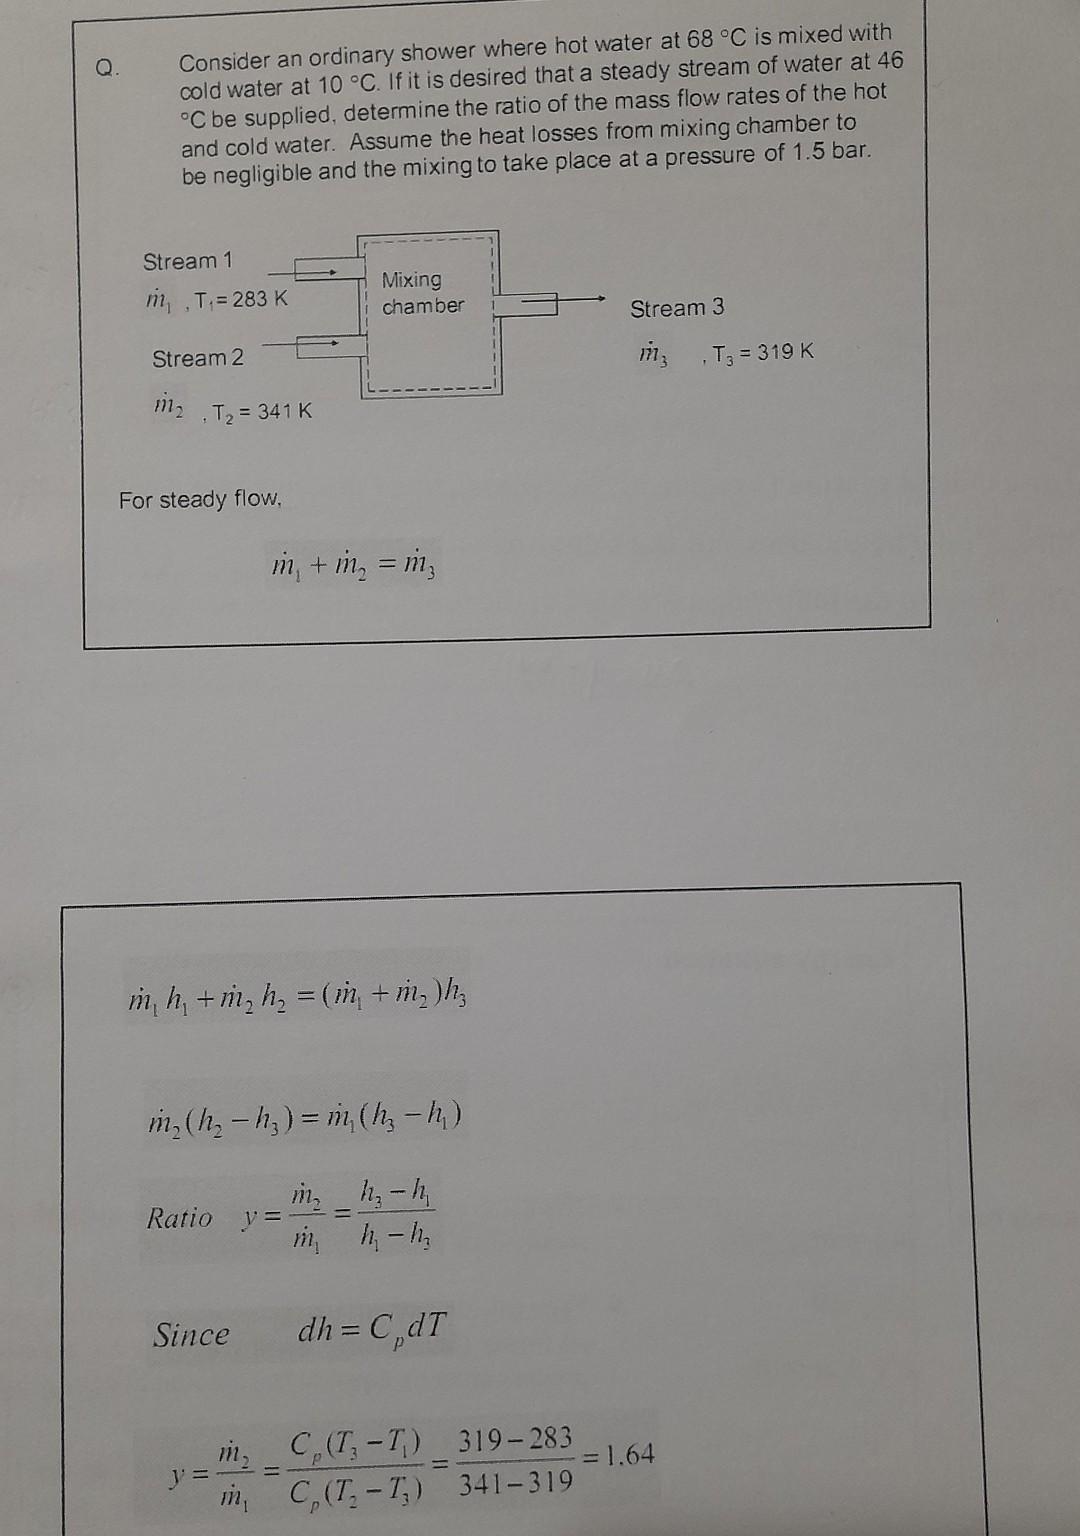 Q. Consider an ordinary shower where hot water at 68 °C is mixed with
cold water at 10 °C. If it is desired that a steady stream of water at 46
°C be supplied, determine the ratio of the mass flow rates of the hot
and cold water. Assume the heat losses from mixing chamber to
be negligible and the mixing to take place at a pressure of 1.5 bar.
Stream 1
ṁ₁ , T₁ = 283 K
Mixing
chamber
Stream 2
ṁ₂ , T₂ = 341 K
Stream 3
ṁ₃ , T₃ = 319 K
For steady flow,
ṁ₁ + ṁ₂ = ṁ₃
ṁ₁ h₁ + ṁ₂ h₂ = (ṁ₁ + ṁ₂)h₃
ṁ₂(h₂ − h₃) = ṁ₁(h₃ − h₁)
Ratio y = ṁ₂/ṁ₁ = (h₃ − h₁)/(h₁ − h₃)
Since dh = CₚdT
y = ṁ₂/ṁ₁ = Cₚ(T₃ − T₁)/Cₚ(T₂ − T₃) = (319 − 283)/(341 − 319) = 1.64